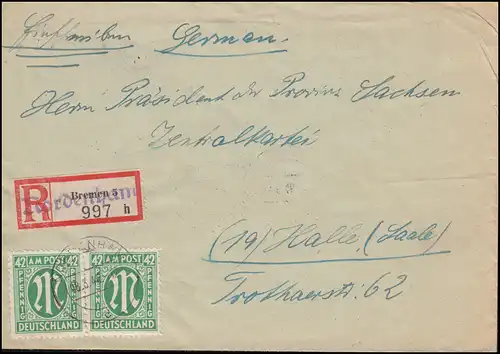 Einschreiben German
Herrn Präsident der Provinz Sachsen
Zentralkartei
R Bremen 5
Nordenham
997 h
(19) Halle (Saale)
Trothaerstr. 62
42 AM POST 42
PFENNIG M PFENNIG
DEUTSCHLAND
42 AM POST 42
PFENNIG M PFENNIG
DEUTSCHLAND